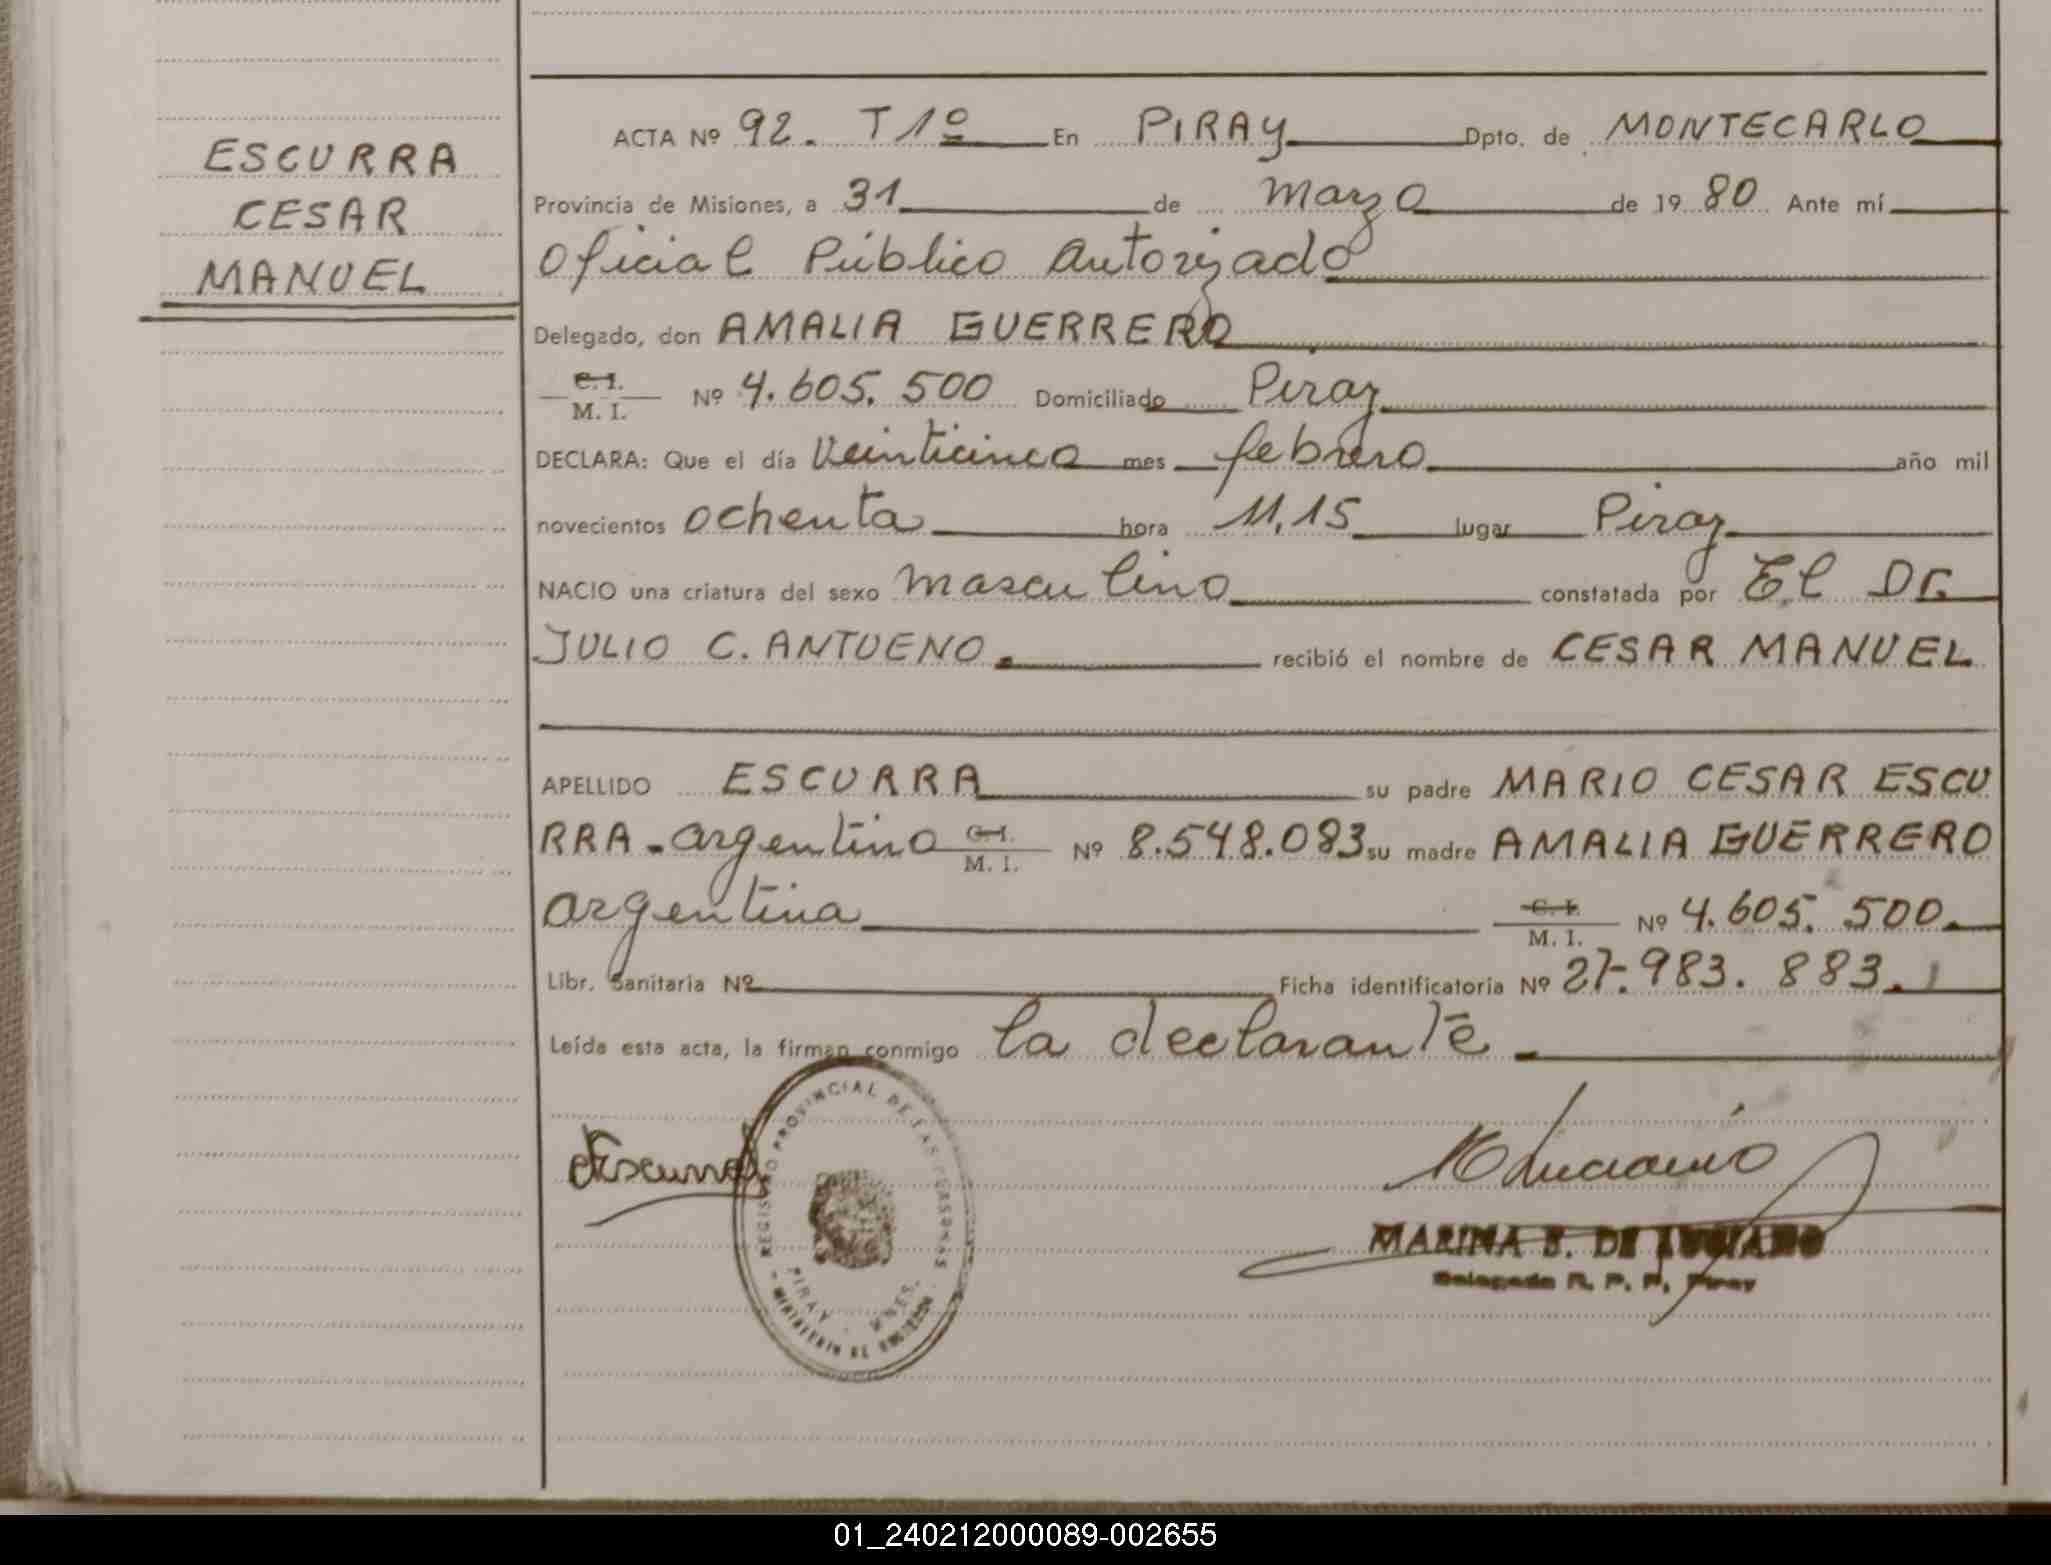 ESCURRA
CESAR
MANUEL
ACTA Nº 92. T 1º En PIRAY Dpto. de MONTECARLO
Provincia de Misiones, a 31 de Marzo de 19 80 Ante mí
Oficial Público Autorizado
Delegado, don AMALIA GUERRERO
C. I.
M. I. Nº 4.605.500 Domiciliado Piray
DECLARA: Que el día Veinticinco mes febrero año mil
novecientos ochenta hora 11,15 lugar Piray
NACIO una criatura del sexo masculino constatada por El Dr.
JULIO C. ANTUENO. recibió el nombre de CESAR MANUEL
APELLIDO ESCURRA su padre MARIO CESAR ESCU
RRA - argentino C. I. M. I. Nº 8.548.083 su madre AMALIA GUERRERO
argentina C. I. M. I. Nº 4.605.500.
Libr. Sanitaria Nº Ficha identificatoria Nº 27.983.883.
Leída esta acta, la firman conmigo la declarante
REGISTRO PROVINCIAL DE LAS PERSONAS
PIRAY - MNES.
MINISTERIO DE GOBIERNO
MARINA S. DE LUCIANO
Delegada R. P. P. Piray
01_240212000089-002655